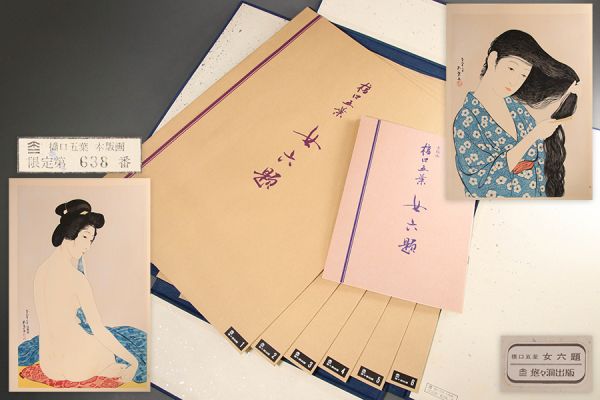 橋口五葉 木版画
限定第 638 番
橋口五葉
女六題
橋口五葉
女六題
1
2
3
4
5
6
橋口五葉 女六題
悠々洞出版